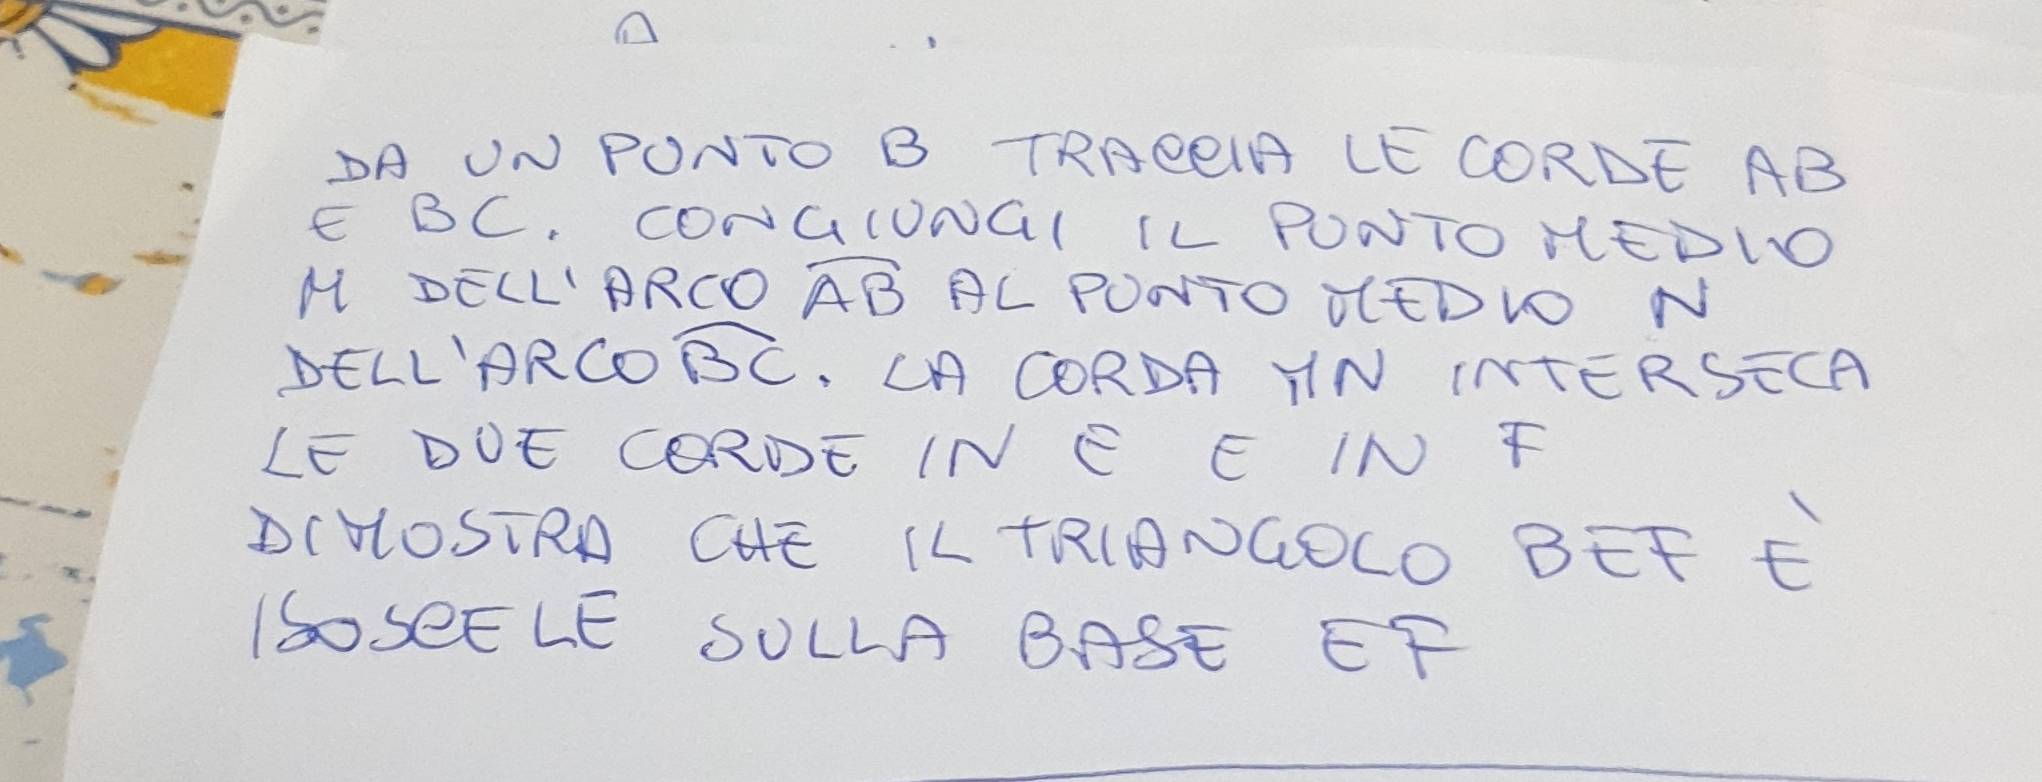 DA UN PUNTO B TRACCIA LE CORDE AB
E BC. CONGIUNGI IL PUNTO MEDIO
M DELL'ARCO AB AL PUNTO MEDIO N
DELL'ARCO BC. LA CORDA MN INTERSECA
LE DUE CORDE IN E E IN F
DIMOSTRA CHE IL TRIANGOLO BEF È
ISOSCELE SULLA BASE EF